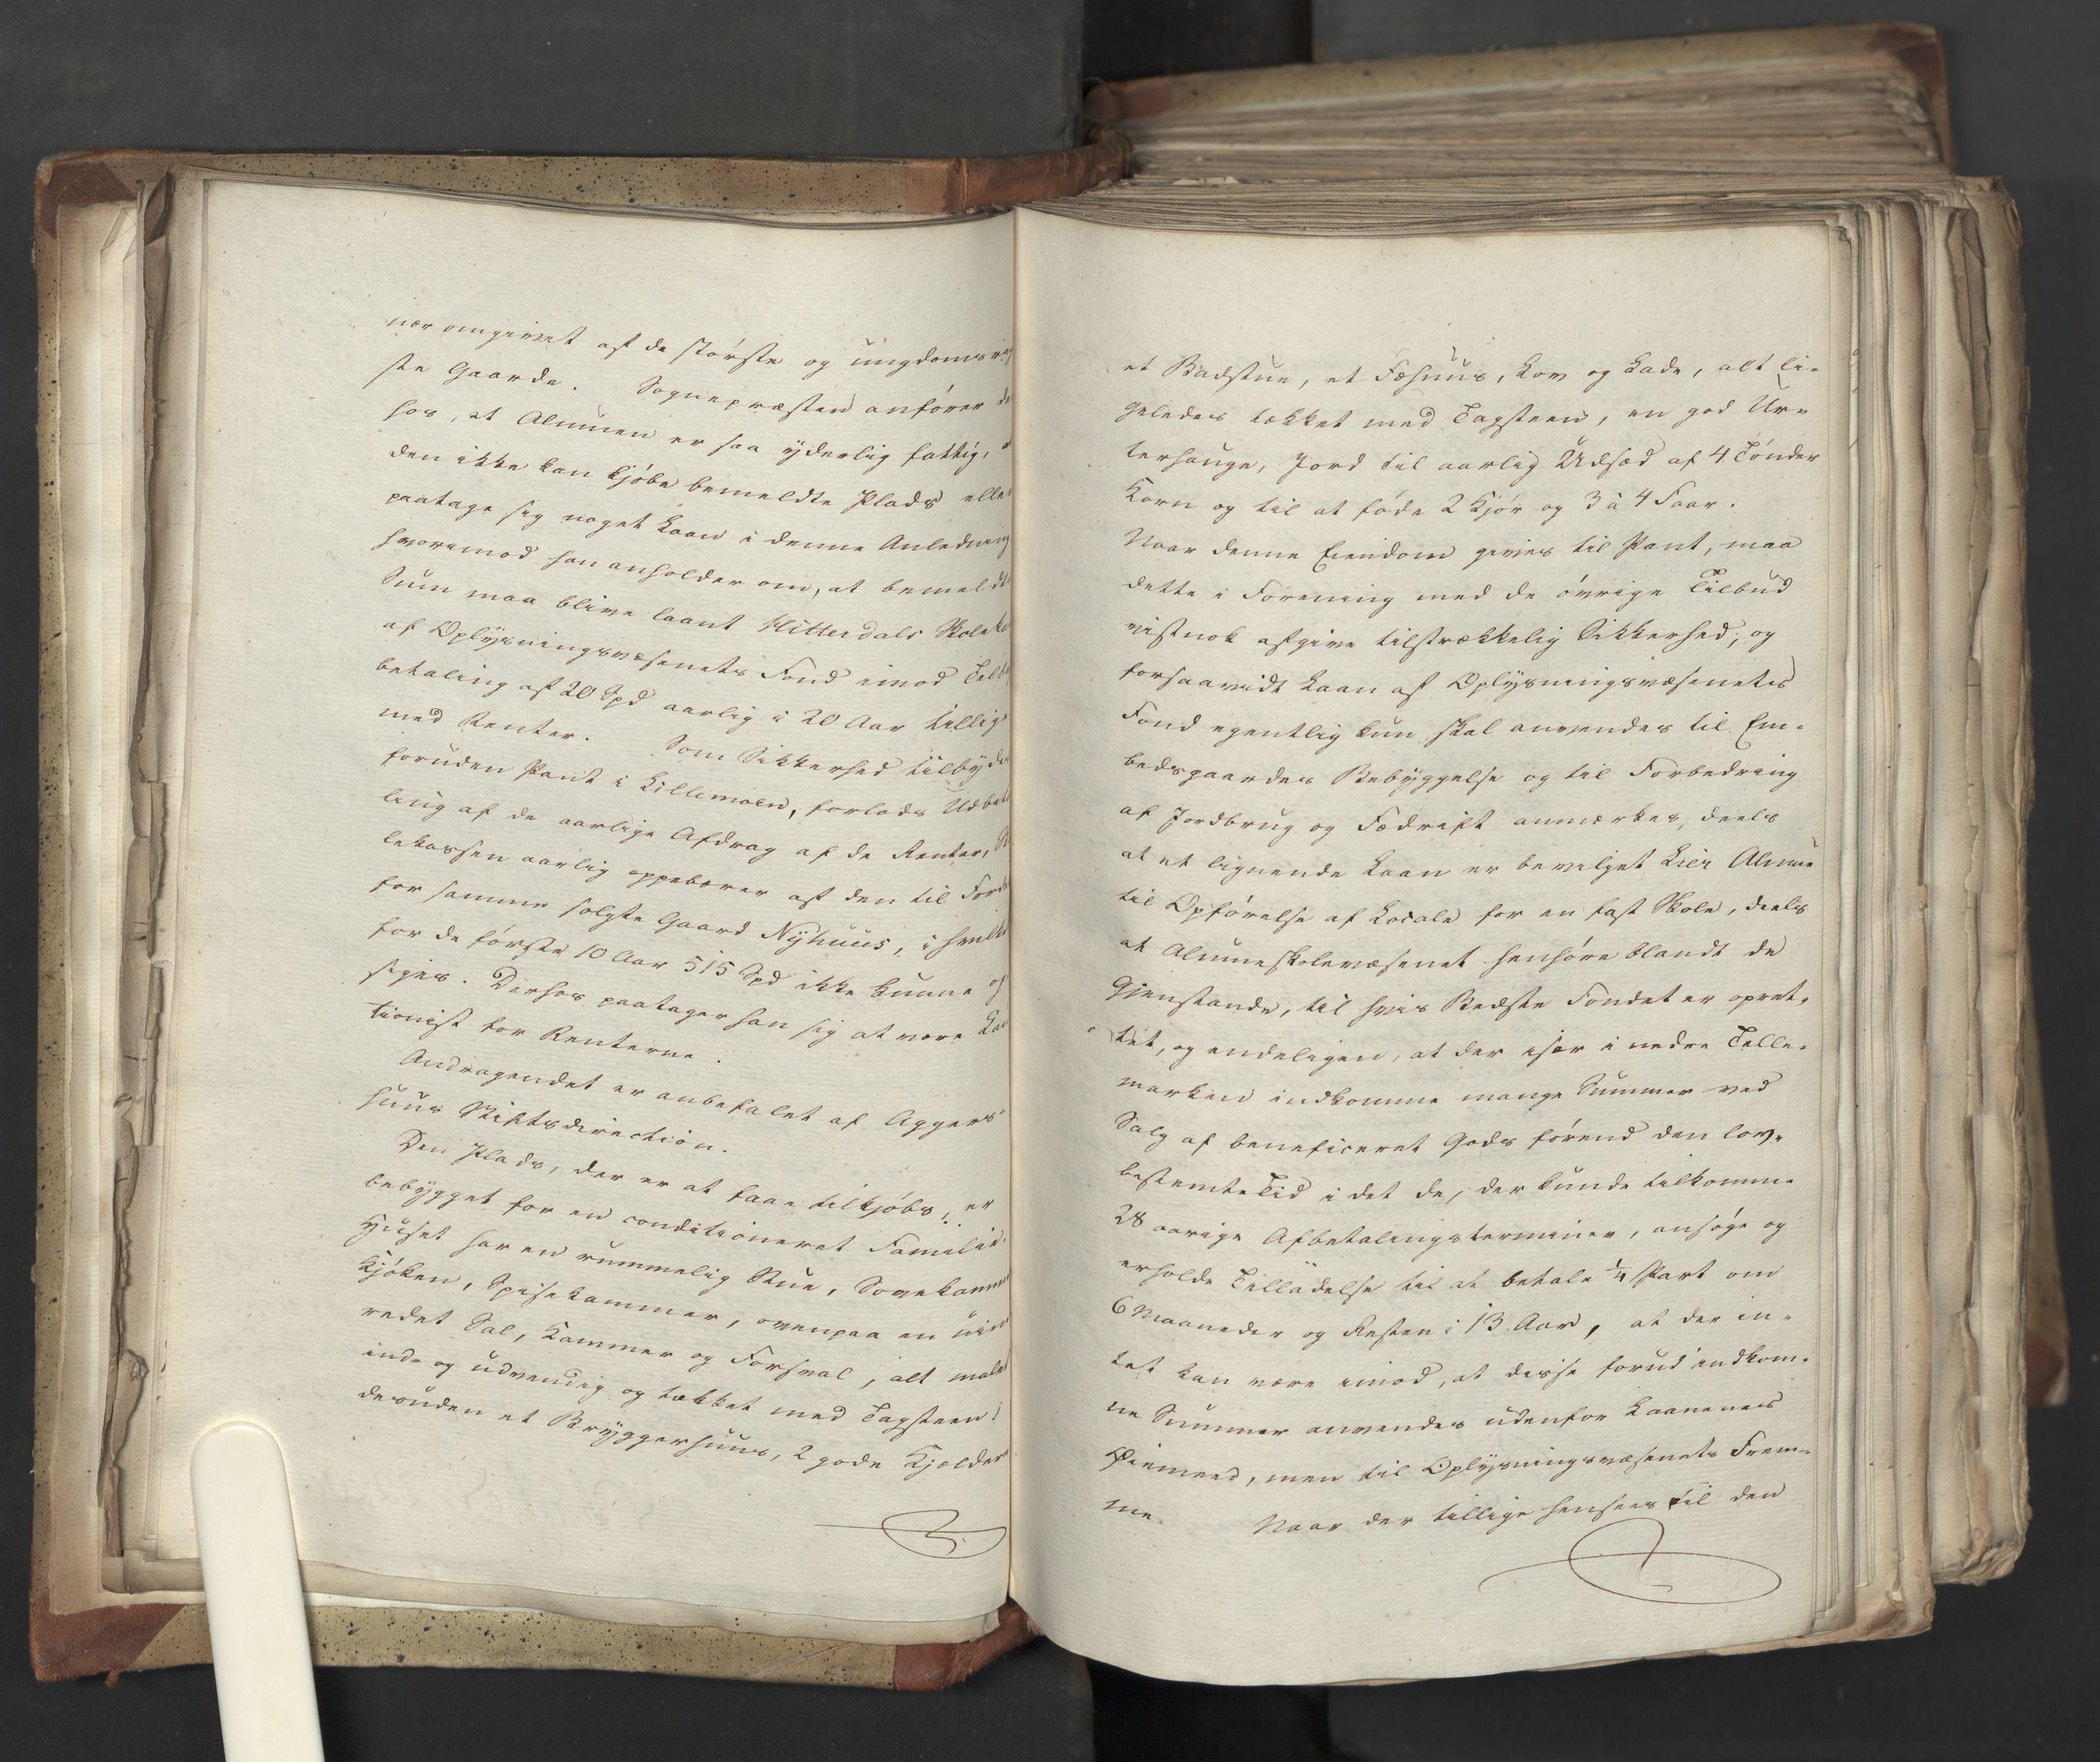 nær omgivet af de største og ungdomsrig
ste Gaarde. Sognepræsten anfører de
hos, at Almuen er saa yderlig fattig, a
den ikke kan kjøbe bemeldte Plads eller
paatage sig noget Laan i denne Anledning
hvorimod han anholder om, at bemeldt
Sum maa blive laant Hitterdals Skoleka
af Oplysningsvæsenets Fond imod Tilb
betaling af 20 Spd aarlig i 20 Aar tillige
med Renter. Som Sikkerhed tilbyde
foruden Pant i Lillemoen, forlods Udbeta
ling af de aarlige Afdrag af de Renter, Sko
lekassen aarlig oppebærer af den til Forde
for samme solgte Gaard Nyhuus, i hvilke
for de første 10 Aar 515 Spd ikke kunne op
siges. Derhos paatager han sig at være Cau
tionist for Renterne.
Andragendet er anbefalet af Aggers
huus Stiftsdirection.
Den Plads, der er at faae tilkjøbs, er
bebygget for en conditioneret Familie.
Huset har en rummelig Stue, Sovekamme
Kjøken, Spisekammer, ovenpaa en uind
redet Sal, Kammer og Forsval, alt malet
ind- og udvendig og tækket med Tagsteen;
desuden et Bryggerhuus, 2 gode Kjelder
et Badstue, et Fæhuus, Lov og Lade, alt li-
geledes tækket med Tagsteen, en god Ur-
terhauge, Jord til aarlig Udsæd af 4 Tønder
Korn og til at føde 2 Kjør og 3 à 4 Faar.
Naar denne Eiendom gives til Pant, maa
dette i Forening med de øvrige Tilbud
vistnok afgive tilstrækkelig Sikkerhed, og
forsaavidt Laan af Oplysningsvæsenets
Fond egentlig kun skal anvendes til Em-
bedsgaardes Bebyggelse og til Forbedring
af Jordbrug og Fædrift anmærkes, deels
at et lignende Laan er bevilget Lier Almue
til Opførelse af Locale for en fast Skole, deels
at Almueskolevæsenet henhøre blandt de
Gjenstande, til hvis Bedste Fondet er opret-
tet, og endeligen, at der især i nedre Telle-
marken indkomme mange Summer ved
Salg af beneficeret Gods førend den lov-
bestemte Tid i det de, der kunde tilkomme
28 aarige Afbetalingsterminer, ansøge og
erholde Tilladelse til at betale ¼ Part om
6 Maaneder og Resten i 13 Aar, at der in-
tet kan være imod, at disse forud indkom-
ne Summer anvendes udenfor Laanenes
Øiemeed, men til Oplysningsvæsenets Frem-
me. Naar der tillige henseees til den